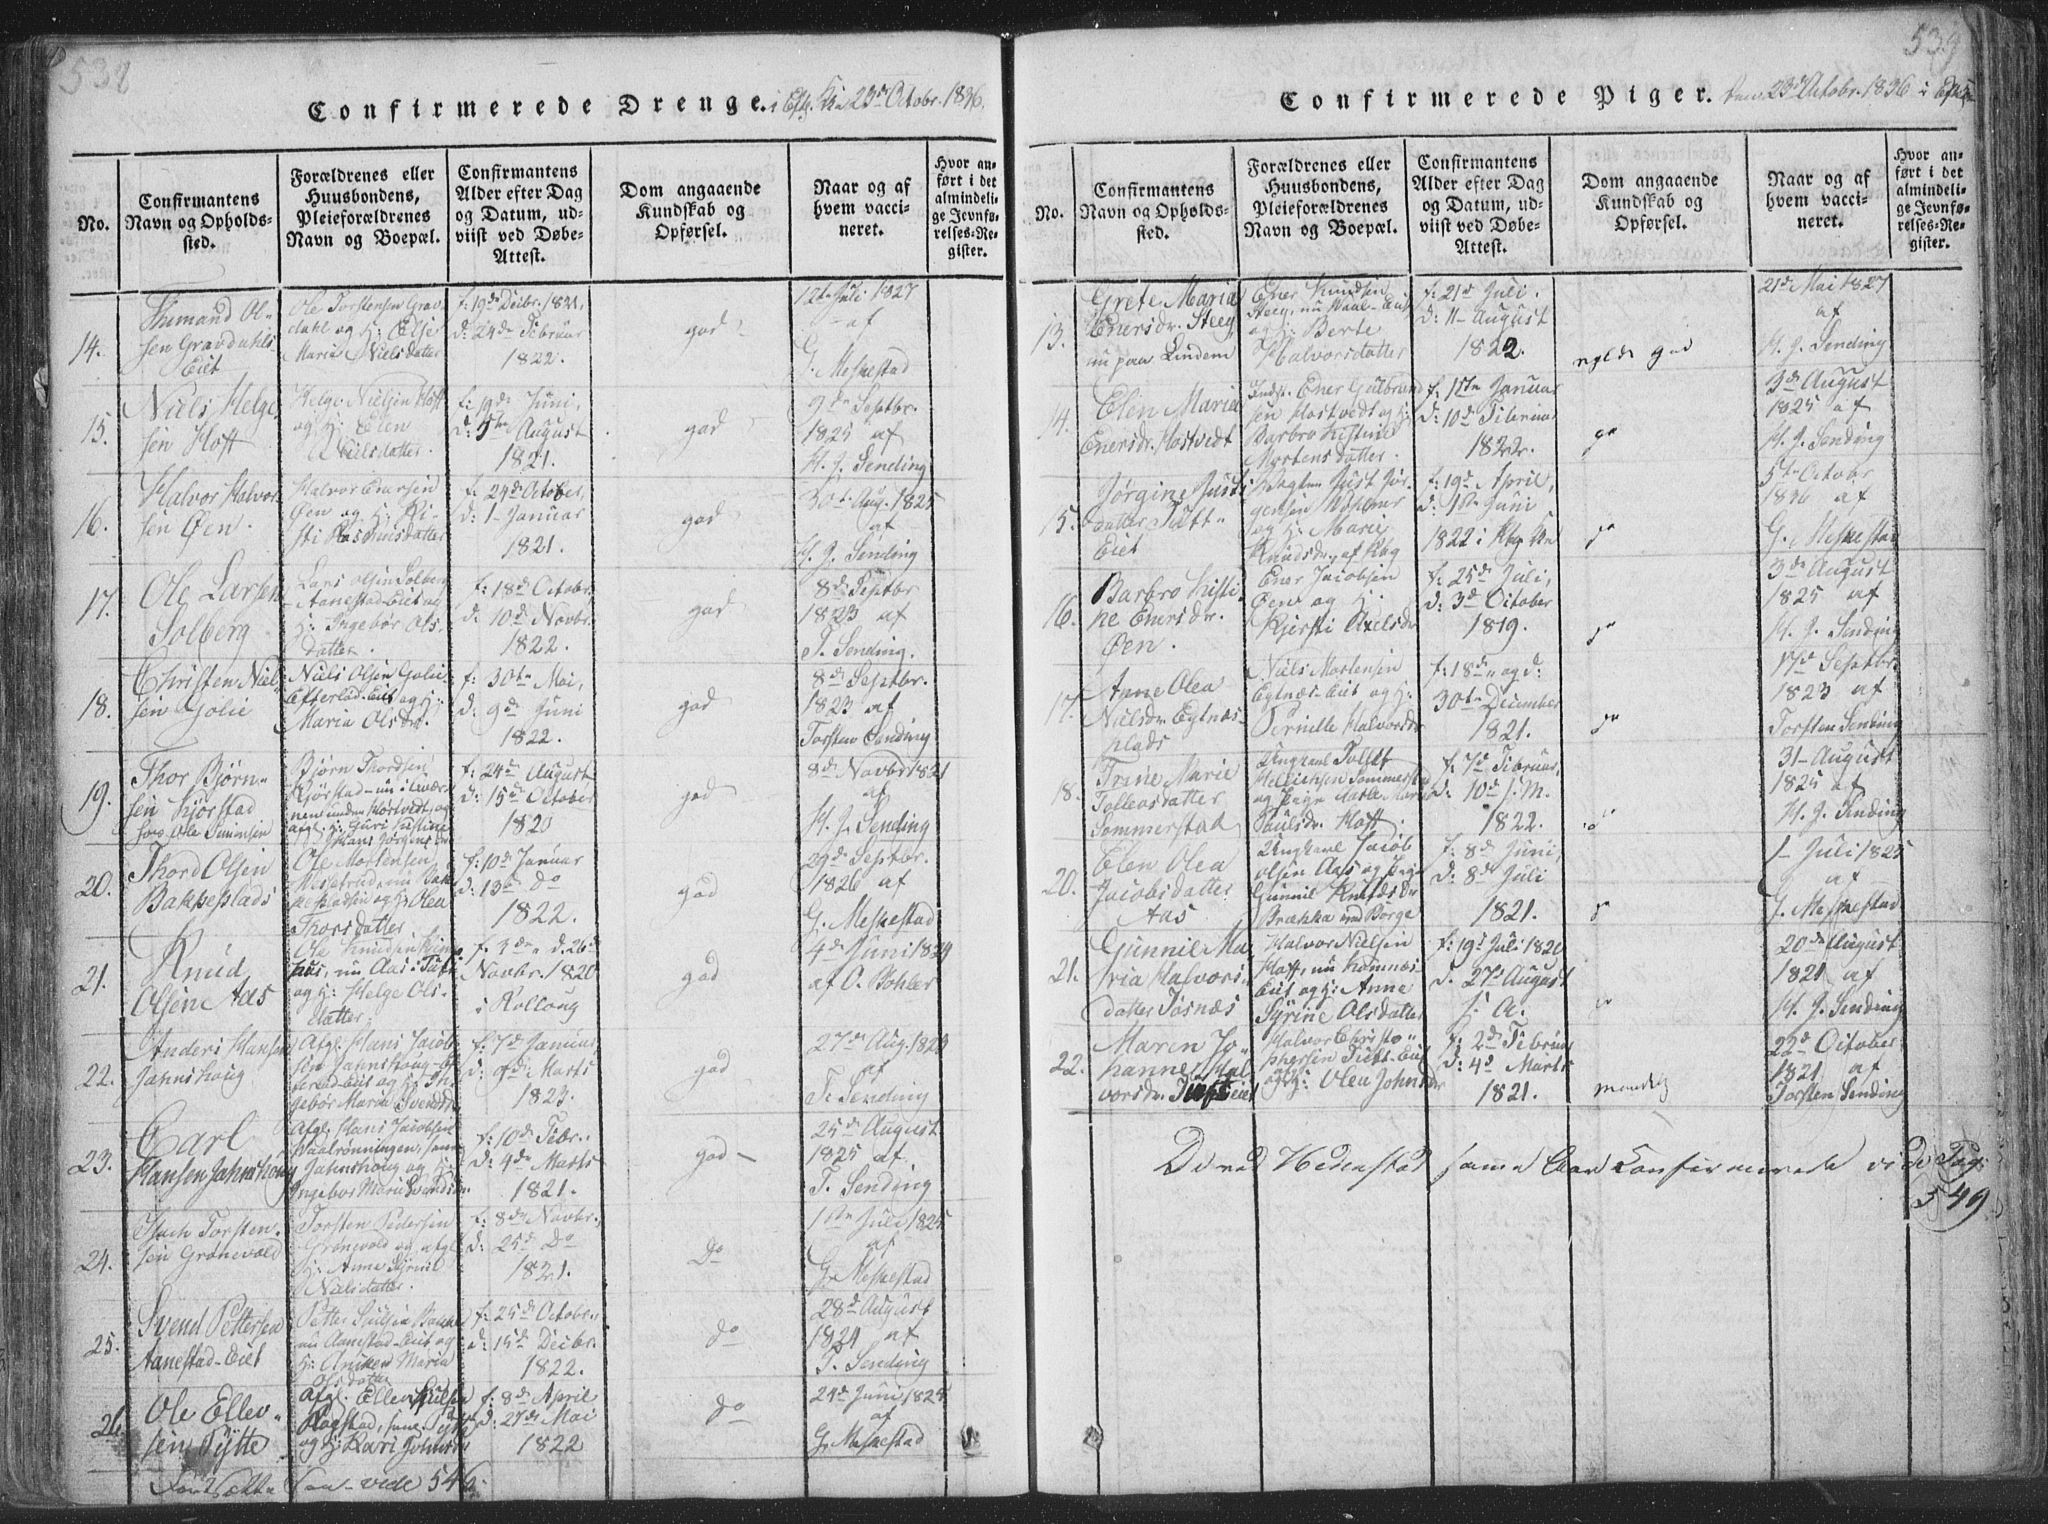 538
Confirmerede Drenge. i 23de Octobr. 1836.
No.
Confirmantens
Navn og Opholds-
sted.
Forældrenes eller
Huusbondens,
Pleieforældrenes
Navn og Boepæl.
Confirmantens
Alder efter Dag
og Datum, ud-
viist ved Døbe-
Attest.
Dom angaaende
Kundskab og
Opførsel.
Naar og af
hvem vacci-
neret.
Hvor an-
ført i det
almindeli-
ge Jevnfø-
relses-Re-
gister.
14.
Ol-
sen Gravdahls
Eiet
Ole Torstensen Grav-
dahl og H: Else
Marie Nielsdatter
f: 19de Decbr. 1821,
d: 24de Februar
1822.
god
12te Juli 1827
af
G. Meskestad
15.
Niels Helge-
sen Hoff
Helge Nielsen Hoff
og H: Elen
Nielsdatter.
f: 19de Juni,
d: 5te August
1821.
god
9de Septbr.
1825 af
H. J. Sending
16.
Halvor Halvor
sen Øen.
Halvor Enersen
Øen og H: Ki-
sti Rasmusdatter
f: 24de October,
d: 1- Januar
1821.
god
30te Aug. 1825
af
H. J. Sending
17.
Ole Larsen
Solberg
Lars Olsen Solberg
Aanestad-Eiet og
H: Ingebor Ols-
datter.
f: 18de Octobr.
d: 10de Novbr.
1822.
god
8de Septbr
1823 af
T. Sending.
18.
Christen Niel-
sen Golie
Niels Olsen Golie
Efterlød-Eiet og H:
Maria Olsdr.
f: 30te Mai,
d: 9de Juni
1822.
god
8de Septbr.
1823 af
Torsten Sending
19.
Thor Bjørn-
sen Kjørstad
hos Ole Simensen
Bjørn Thordsen
Kjørstad - nu i Qvær-
nen under Hostvedt, og
afgl. H: Guri Justine
Hans Jørgensdr
f: 24de August
d: 15de October
1820
god
8de Novbr 1821
af
H. J. Sending
20.
Thord Olsen
Bakkeplads
Ole Mortensen
nu Bak-
kepladsen og H: Olea
Thorsdatter
f: 10de Januar
d: 13de do
1822.
god
29de Septbr.
1826 af
G. Meskestad
21.
Knud
Olsen Aas
Ole Knudsen
huus, nu Aas i Tuft
og H: Helge Ols-
datter;
f. 3de d. 26de
Novbr. 1820
i Rolloug
god
4de Juni 1829
af O. Bohler
22.
Anders Hansen
Jahnshoug
Afgl. Hans Jacob-
sen Jahnshoug - Ef-
terlød-Eiet og H: In-
gebor Maria Svendsdr.
f: 7de Januar,
d: 9de Marts
1823.
god
27de Aug. 1829
af
T. Sending
23.
Carl
Hansen Jahnshoug
Afgl. Hans Jacobsen
Vaalrønningen, senere
Jahnshoug og H:
Ingebor Marie Svendsdr.
f: 10de Febr.
d: 4de Marts
1821.
god
25de August
1825 af
T. Sending
24.
Isach Torsten-
sen Grønevold
Torsten Pedersen
Grønevold og afgl.
H: Anne Syrine
Nielsdatter.
f: 8de Novbr.,
d: 25de Do
1821.
Do
1ste Juli 1825
af
G. Meskestad
25.
Svend Pettersen
Aanestad-Eiet
Petter
nu Aanestad-Eiet og
H: Aniken Maria
Olsdatter
f: 25de Octobr.,
d: 15de Decbr.
1822.
do
28de August
1824 af
T. Sending
26.
Ole Ellev-
sen Tytte
Afgl. Ellev
Rogstad, sen. Tytte
og H: Kari Johns
f: 8de April
d: 27de Mai
1822
do
24de Juni 1824
af
G. Meskestad
vide 546.
539
Confirmerede Piger. den 23de Octobr. 1836 i
No.
Confirmantens
Navn og Opholds-
sted.
Forældrenes eller
Huusbondens,
Pleieforældrenes
Navn og Boepæl.
Confirmantens
Alder efter Dag
og Datum, ud-
viist ved Døbe-
Attest.
Dom angaaende
Kundskab og
Opførsel.
Naar og af
hvem vacci-
neret.
Hvor an-
ført i det
almindeli-
ge Jevnfø-
relses-Re-
gister.
13.
Grete Maria
Enersdr. Steeg
nu paa Lindem
Ener Knudsen
Steeg, nu Vaal-Eiet
og H: Berte
Halvorsdatter
f: 21de Juli
d: 11- August
1822.
god
21de Mai 1827
af
H. J. Sending
14.
Elen Maria
Enersdr. Hostvedt
Inds. Ener Gulbrand
sen Hostvedt og H:
Barbro Kistine
Mortensdatter.
f: 17de Januar
d: 10de Februar
1822.
3de August
1825 af
H. J. Sending
15.
Jørgine Justi
datter Tuft-
Eiet
Just Jør-
gensen
og H: Marie
Knudsdr. af Kbg
f: 19de April,
d: Juni
1822 i Kbg
5te Octobr
1836 af
G. Meskestad
16.
Barbro Kisti-
ne Enersdr.
Øen.
Ener Jacobsen
Øen og H:
Kjersti Axelsdr
f: 25de Juli,
d: 3de October
1819.
3de August
1825 af
H. J. Sending
17.
Anne Olea
Nielsdr. Egtnæs-
plads
Niels Mortensen
Egtnæs-Eiet og H:
Pernille Halvorsdr
f: 18de og d:
30te December
1821.
17de Septbr.
1823 af
Torsten Sending
18.
Trine Marie
Tollevsdatter
Sommerstad
Ungkarl Tollef
Sommerstad
og Pige Maria
Paulsdr. Hoff
f. 7de Februar,
d: 10de s. M.
1822.
31- August
1825 af
H. J. Sending
20.
Elen Olea
Jacobsdatter
Aas
Ungkarl Jacob
Olsen Aas og Pige
Gunnil Knudsdr
Brækka ved Borge
f: 8de Juni,
d: 8de Juli
1821.
1- Juli 1825
af
G. Meskestad
21.
Gunnil Ma-
ria Halvors-
datter Tosnæs
Halvor Nielsen
Hoff, nu Komnæs-
Eiet og H: Anne
Syrine Olsdatter
f: 19de Juli 1820
d. 27de August
s. A.
20de August
1821 af
H. J. Sending
22.
Maren Jo-
hanne Hal
vorsdr. Tufteeiet
Halvor Christo-
phersen Tufts-Eiet
og H: Olea Johnsdr
f: 2de Februar
d: 4de Marts
1821.
maadelig
22de October
1821 af
Torsten Sending
De ved Hedenstad samme Aar Confirmerede vide Pag:
549